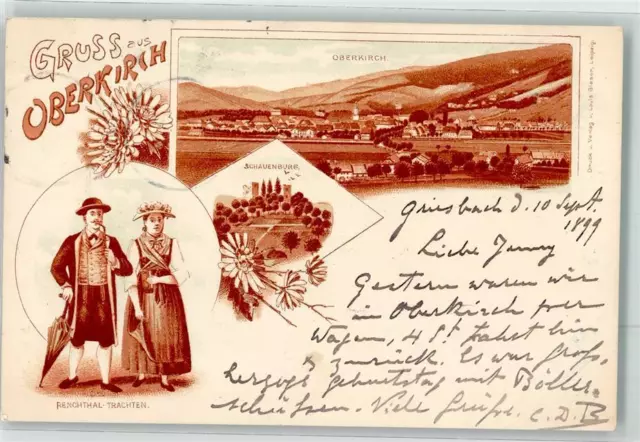 GRUSS aus
OBERKIRCH
OBERKIRCH.
SCHAUENBURG
RENCHTHAL-TRACHTEN.
Druck u. Verlag v. Leipzig.
Griesbach d. 10 Sept.
1899
Liebe Jenny
Gestern waren wir
in Oberkirch per
Wagen, 4 St. Fahrt hin
& zurück. Es war Gross-
herzogs Geburtstag mit Böller-
schüssen. Viele Grüsse. C. D. B